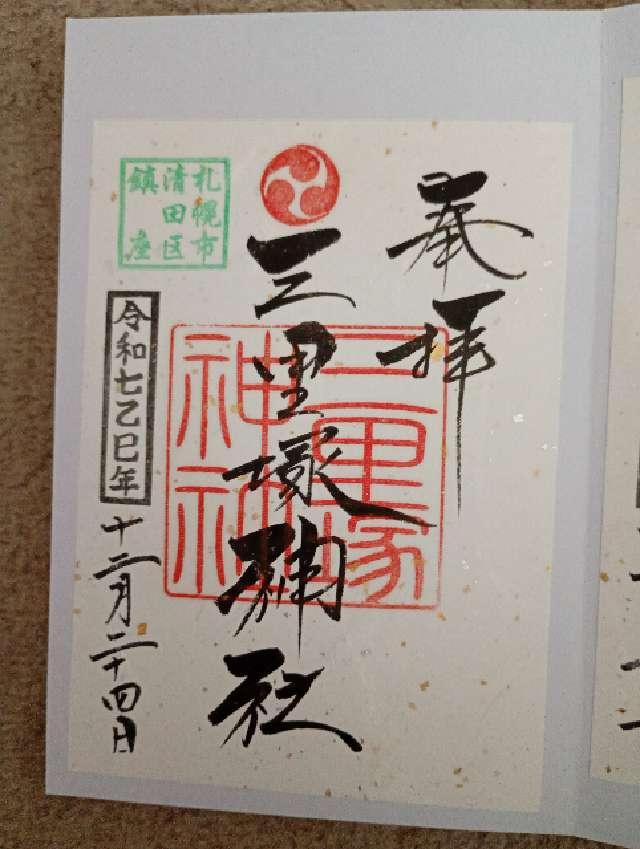 奉拝
三里塚神社
三里塚
神社
札幌市
清田区
鎮座
令和七乙巳年
十二月二十四日